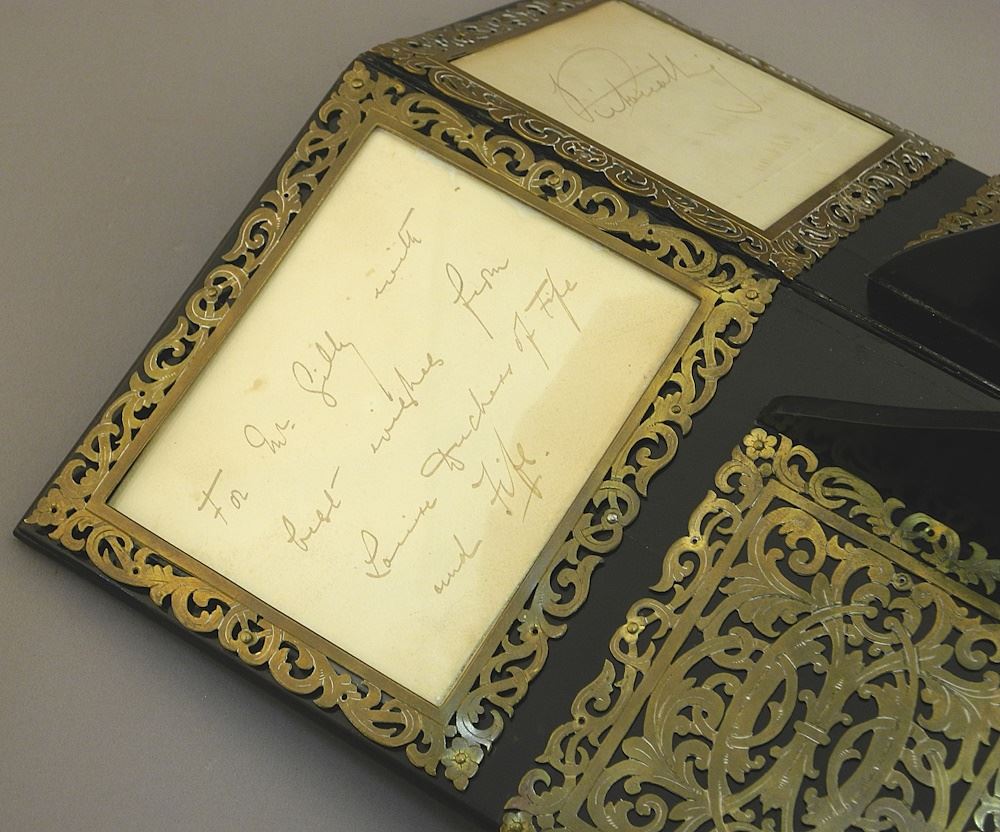 For Mr. Gilly with
best wishes from
Louise Duchess of Fife
and Fife.